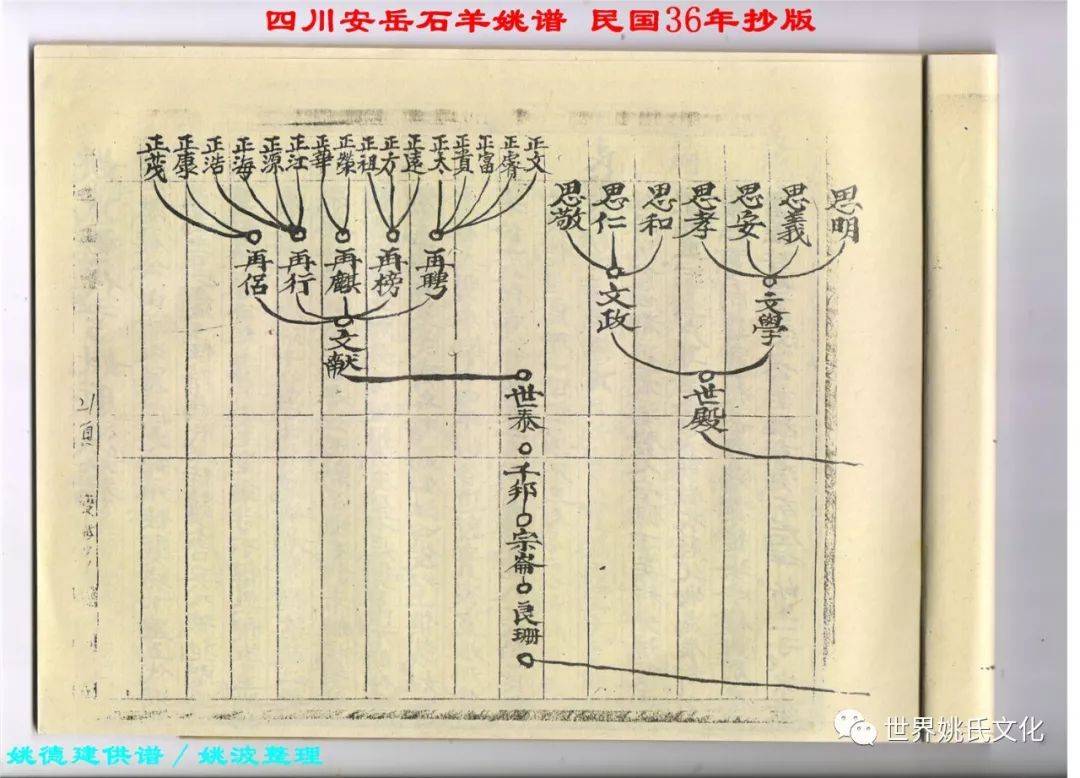 四川安岳石羊姚谱 民国36年抄版
正文
正膺
正富
正貴
正太
正遠
正方
正祖
正榮
正華
正江
正源
正海
正浩
正康
正茂
思明
思義
思安
思孝
思和
思仁
思敬
再聘
再榜
再麒
再行
再侶
文學
文政
文獻
世殿
世泰
千邦
宗崙
良珊
21頁
世界姚氏文化
姚德建供谱/姚波整理